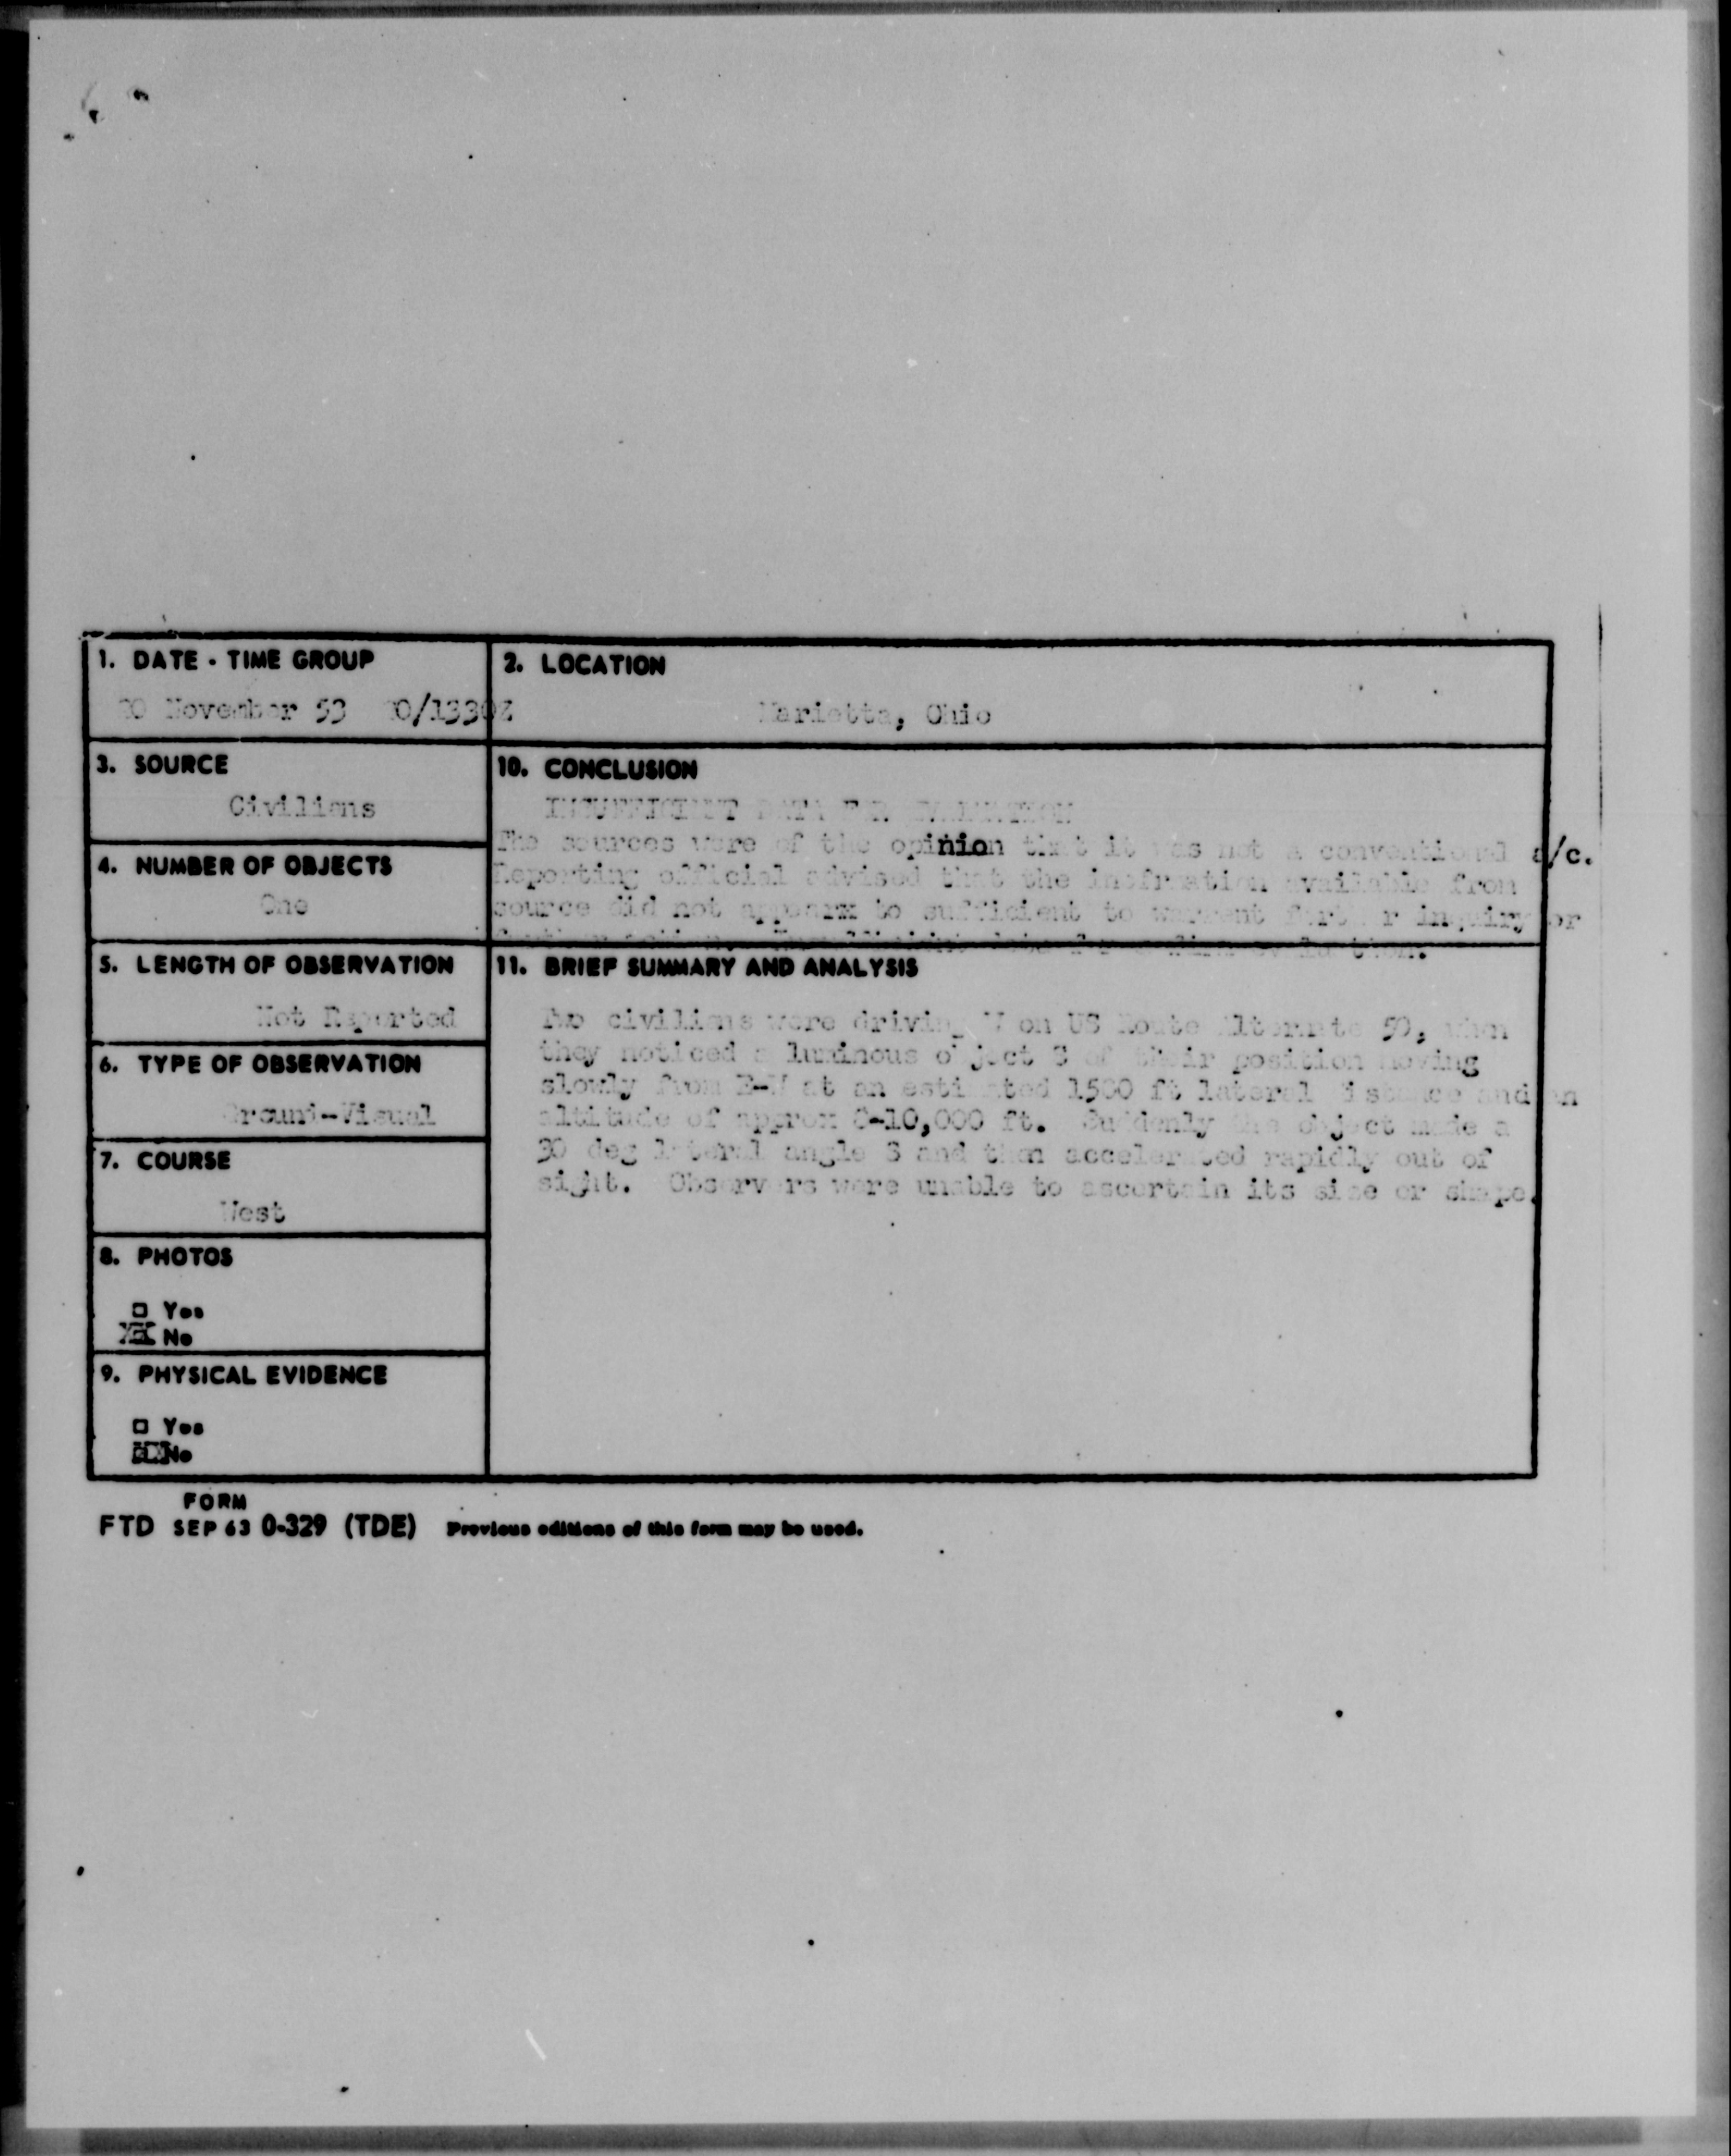 1. DATE - TIME GROUP
November 53 /1330Z
2. LOCATION
Marietta, Ohio
3. SOURCE
Civilians
10. CONCLUSION
INSUFFICIENT DATA FOR EVALUATION
The sources were of the opinion that it was not a conventional a/c.
Reporting official advised that the available from
source did not appearx to sufficient to inquiry or
4. NUMBER OF OBJECTS
One
5. LENGTH OF OBSERVATION
Not Reported
11. BRIEF SUMMARY AND ANALYSIS
Two civilians were driving W on US Route Alternate 50, when
they noticed a luminous object S of their position moving
slowly from E-W at an estimated 1500 ft lateral distance and an
altitude of approx 8-10,000 ft. Suddenly the object made a
30 deg lateral angle S and then accelerated rapidly out of
sight. Observers were unable to ascertain its size or shape.
6. TYPE OF OBSERVATION
Ground-Visual
7. COURSE
West
8. PHOTOS
□ Yes
No
9. PHYSICAL EVIDENCE
□ Yes
No
FORM
FTD SEP 63 0-329 (TDE) Previous editions of this form may be used.